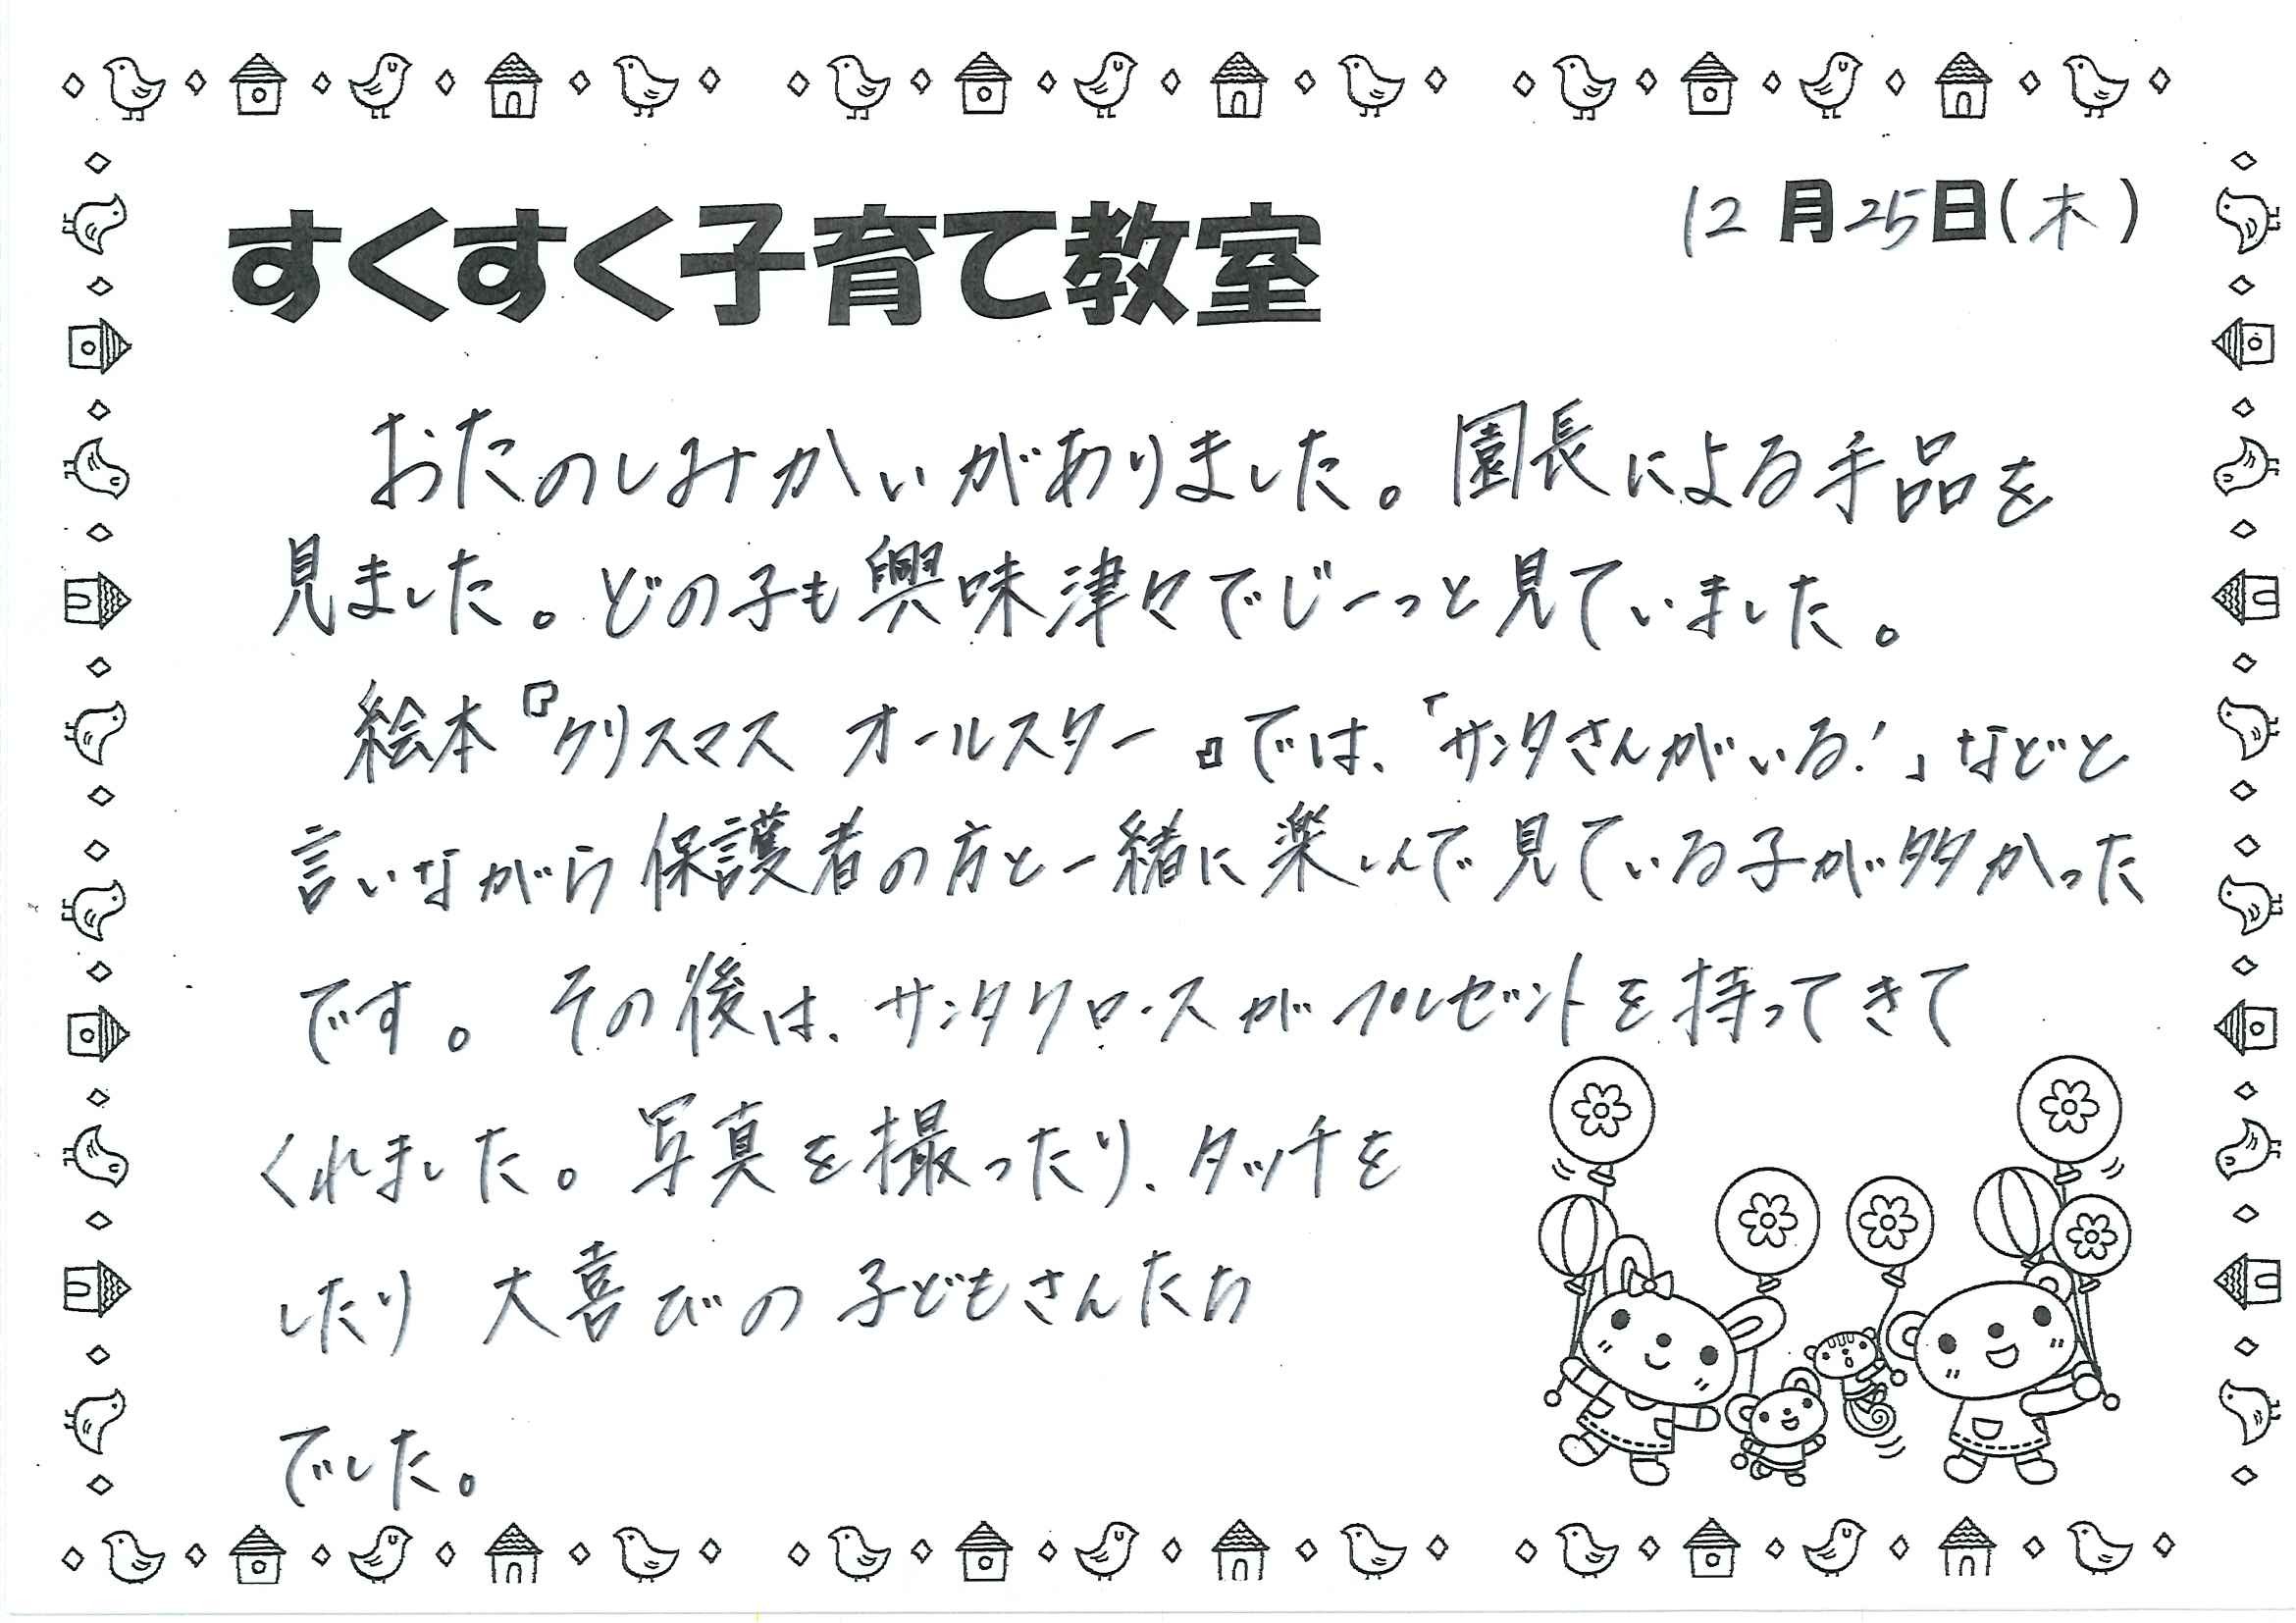 すくすく子育て教室
12月25日(木)
おたのしみかいがありました。園長による手品を
見ました。どの子も興味津々でじーっと見ていました。
絵本『クリスマス オールスター』では、「サンタさんがいる!」などと
言いながら保護者の方と一緒に楽しんで見ている子が多かった
です。その後は、サンタクロースがプレゼントを持ってきて
くれました。写真を撮ったり、タッチを
したり 大喜びの 子どもさんたち
でした。